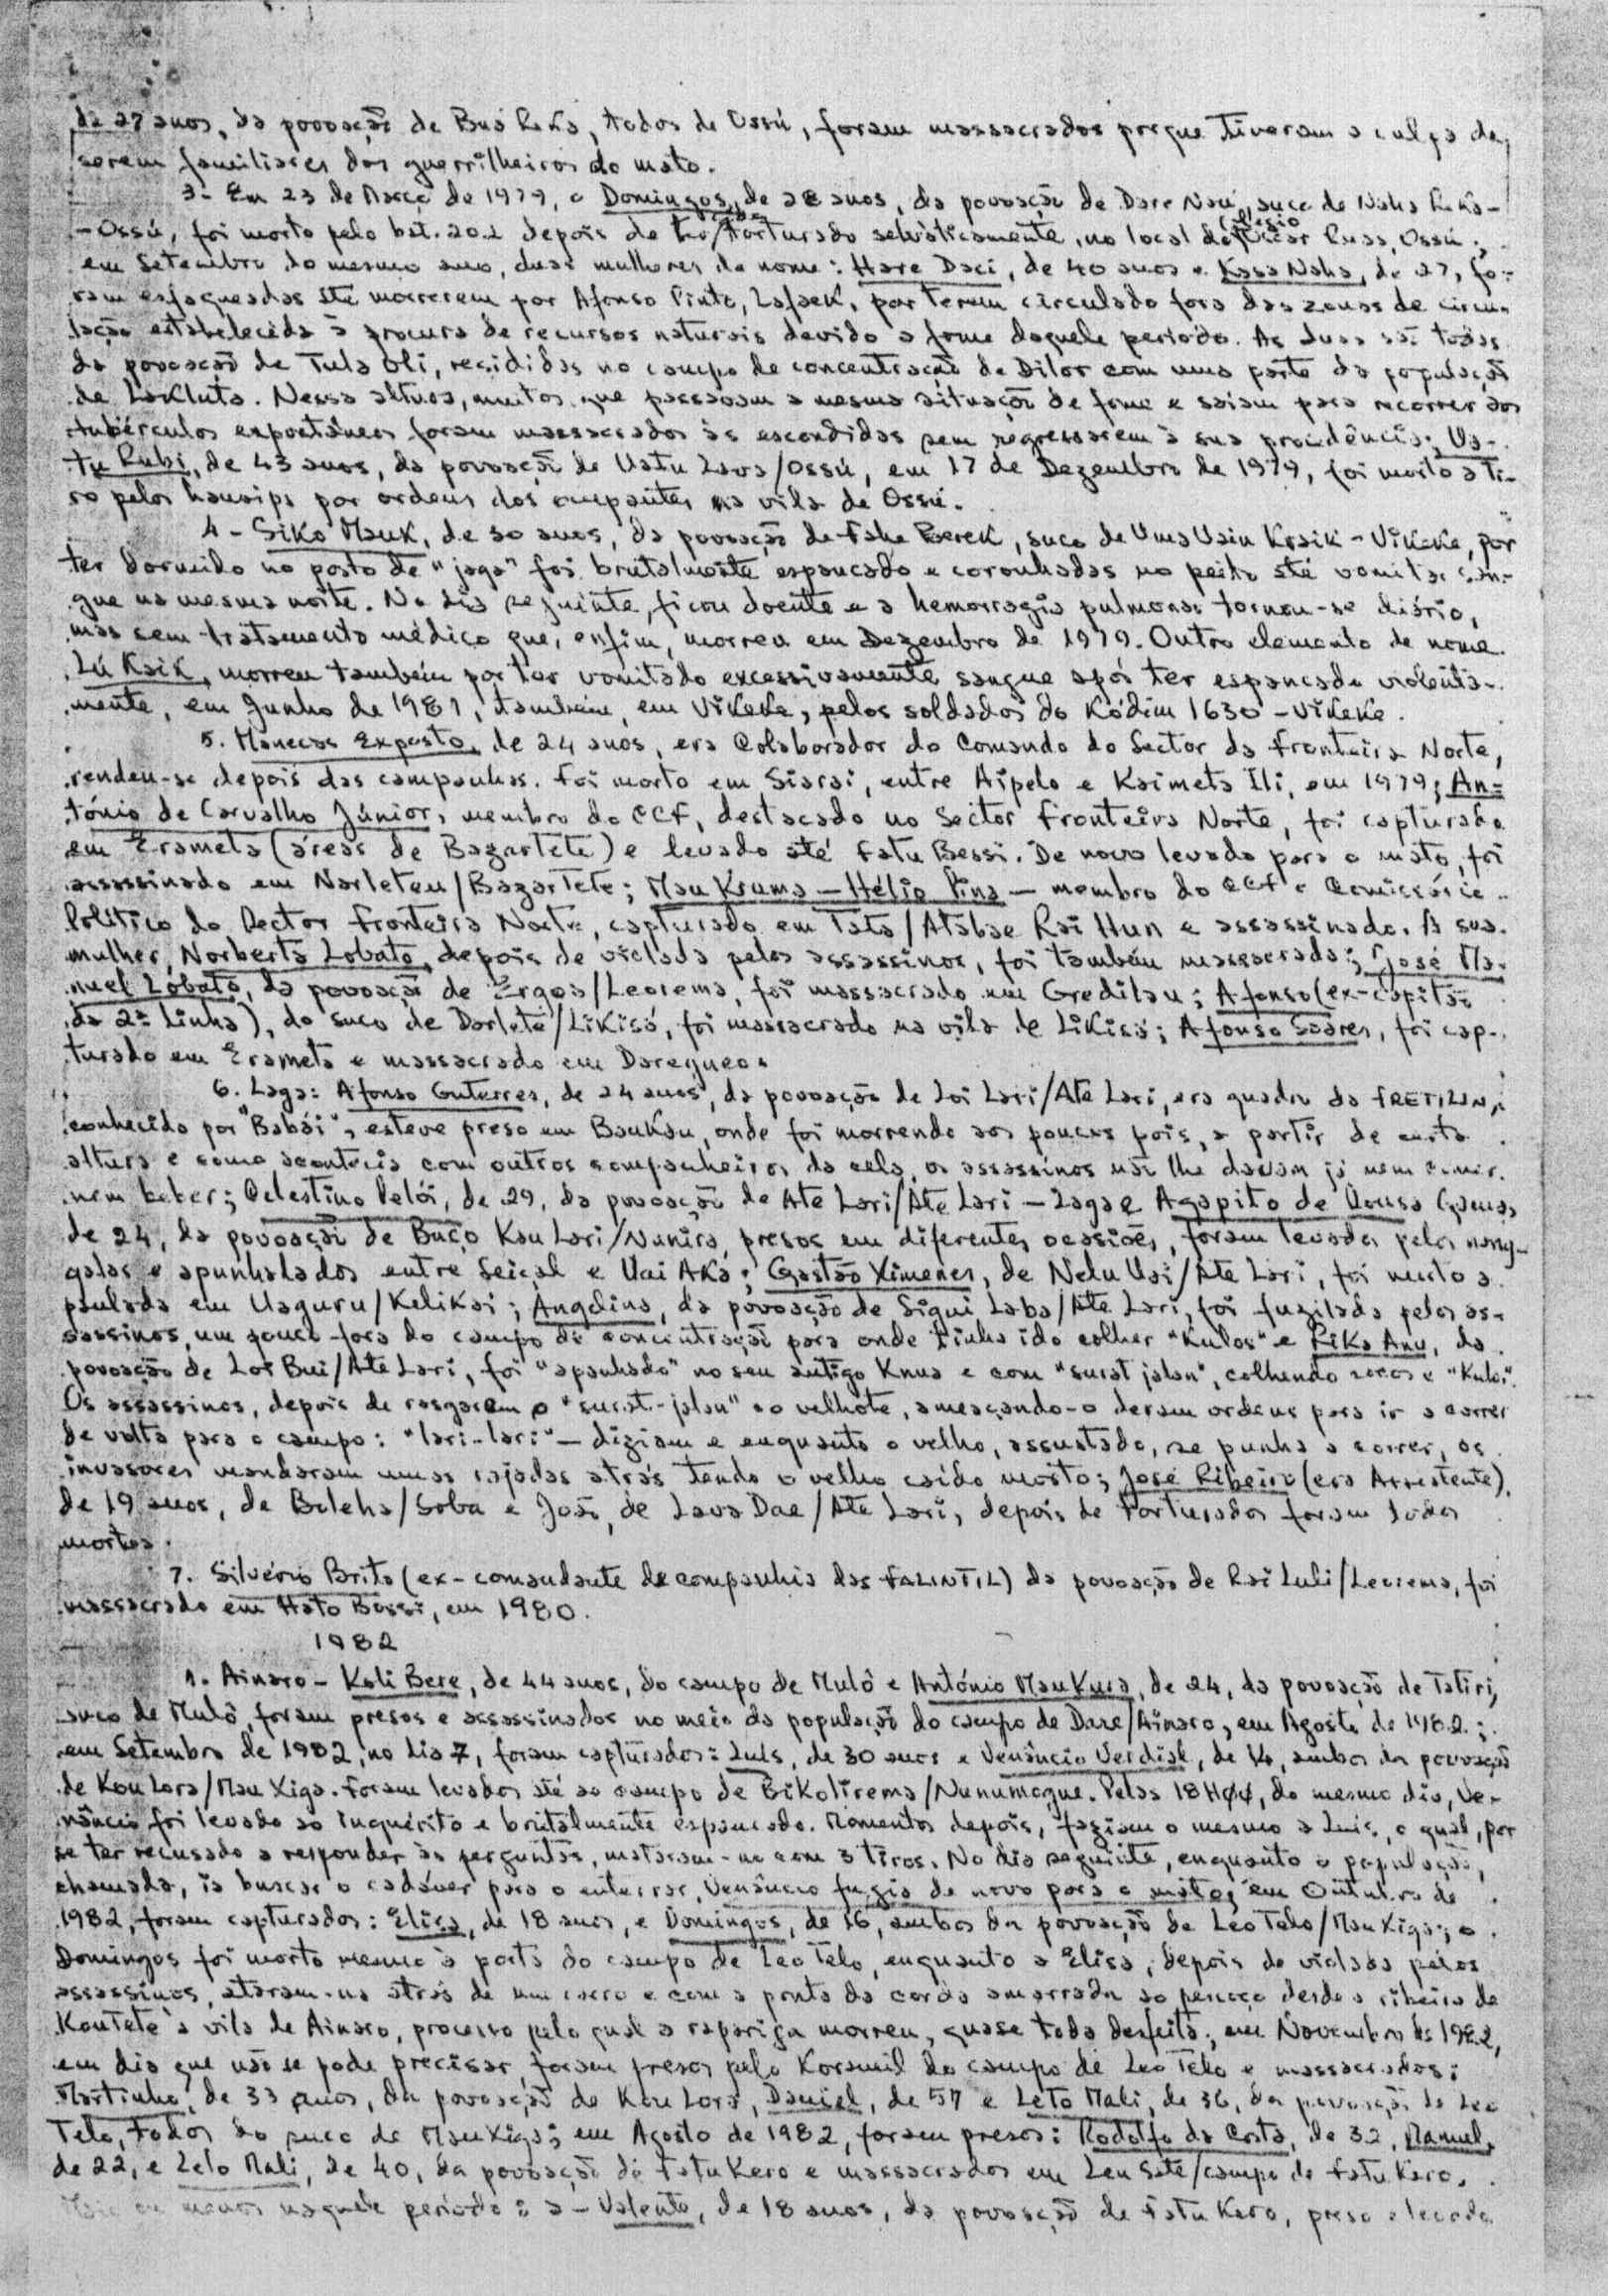 de 27 anos, da povoação de Bua Reka, todos de Ossú, foram massacrados porque tiveram a culpa de
serem familiares dos guerrilheiros do mato.
3- Em 23 de Março de 1979, o Domingos, de 28 anos, da povoação de Dare Nau, suco de Naha Reka-
-Ossú, foi morto pelo bat. 202 depois de torturado selvàticamente, no local de Ossú;
em Setembro do mesmo ano, duas mulheres de nome: Hare Daci, de 40 anos e Kasa Naha, de 27, fo-
ram esfaqueadas até morrerem por Afonso Pinto, Lafaek, por terem circulado fora das zonas de circu-
lação estabelecida à procura de recursos naturais devido a fome daquele periodo. As duas são todas
da povoação de Tula Oli, resididas no campo de concentração de Dilor com uma parte da população
de Lakluta. Nessa altura, muitos que passavam a mesma situação de fome e saiam para recorrer aos
tubérculos expontâneos foram massacrados às escondidas sem regressarem à sua procedência; Ua-
tu Rubi, de 43 anos, da povoação de Uatu Lava/Ossú, em 17 de Dezembro de 1979, foi morto a ti-
ro pelos hansips por ordens dos ocupantes na vila de Ossú.
4- Siko Mauk, de 30 anos, da povoação de Faha Berek, suco de Uma Uain Kraik - Vikeke, por
ter dormido no posto de "jaga" foi brutalmente espancado e coronhadas no peito até vomitar san-
gue na mesma noite. No dia seguinte, ficou doente e a hemorragia pulmonar tornou-se diário,
mas sem tratamento médico que, enfim, morreu em Dezembro de 1979. Outro elemento de nome
Lú Kaik, morreu também por ter vomitado excessivamente sangue após ter espancado violenta-
mente, em Junho de 1981, também, em Vikeke, pelos soldados do Kódim 1630 - Vikeke.
5. Manecas Exposto, de 24 anos, era Colaborador do Comando do Sector da Fronteira Norte,
rendeu-se depois das campanhas. Foi morto em Siarai, entre Aipelo e Kaimeta Ili, em 1979; An-
tónio de Carvalho Júnior, membro do CCF, destacado no Sector Fronteira Norte, foi capturado
em Erameta (áreas de Bazartete) e levado até Fatu Bessi. De novo levado para o mato, foi
assassinado em Narleteu/Bazartete; Mau Kruma - Hélio Pina - membro do CCF e Comissário
Politico do Sector Fronteira Norte, capturado em Tata/Atabae Rai Hun e assassinado. A sua
mulher, Norberta Lobato, depois de violada pelos assassinos, foi também massacrada; José Ma-
nuel Lobato, da povoação de Ergoa/Leorema, foi massacrado em Gredilau; Afonso (ex-capitão
da 2ª Linha), do suco de Darlete/Likisá, foi massacrado na vila de Likisá; Afonso Soares, foi cap-
turado em Erameta e massacrado em Daregueo.
6. Laga: Afonso Guterres, de 24 anos, da povoação de Loi Lari/Ate Lari, era quadro da FRETILIN,
conhecido por "Babói", esteve preso em Baukau, onde foi morrendo aos poucos pois, a partir de certa
altura e como acontecia com outros companheiros da cela, os assassinos não lhe davam já nem comer
nem beber; Celestino Pelói, de 29, da povoação de Ate Lari/Ate Lari - Laga e Agapito de Sousa Gama,
de 24, da povoação de Buço Kau Lari/Nunira, presos em diferentes ocasiões, foram levados pelos nang-
galas e apunhalados entre Seical e Uai Aka; Gastão Ximenes, de Nelu Uai/Ate Lari, foi morto a
paulada em Uaguru/Kelikai; Angelina, da povoação de Sigui Laba/Ate Lari, foi fuzilada pelos as-
sassinos, um pouco fora do campo de concentração para onde tinha ido colher "Kulos" e Rika Anu, da
povoação de Loi Bui/Ate Lari, foi "apanhado" no seu antigo Knua e com "surat jalan", colhendo cocos e "Kulos".
Os assassinos, depois de rasgarem o "surat-jalan" ao velhote, ameaçando-o deram ordens para ir a correr
de volta para o campo: "lari-lari" - diziam e enquanto o velho, assustado, se punha a correr, os
invasores mandaram umas rajadas atrás tendo o velho caído morto; José Ribeiro (era Assistente),
de 19 anos, de Boleha/Soba e João, de Lava Dae/Ate Lari, depois de torturados foram todos
mortos.
7. Silvério Brito (ex-comandante de companhia das FALINTIL) da povoação de Rai Luli/Leorema, foi
massacrado em Hato Bessi, em 1980.
1982
1. Ainaro - Koli Bere, de 44 anos, do campo de Mulô e António Mau Kura, de 24, da povoação de Tatiri,
suco de Mulô, foram presos e assassinados no meio da população do campo de Dare/Ainaro, em Agosto de 1982;
em Setembro de 1982, no dia 7, foram capturados: Luís, de 30 anos e Venâncio Verdial, de 14, ambos da povoação
de Kou Lora/Mau Xiga. Foram levados até ao campo de Bikolirema/Nunumogue. Pelas 18H00, do mesmo dia, Ve-
nâncio foi levado ao inquérito e brutalmente espancado. Momentos depois, faziam o mesmo a Luís, o qual, por
se ter recusado a responder às perguntas, mataram-no com 3 tiros. No dia seguinte, enquanto a população,
chamada, ia buscar o cadáver para o enterrar, Venâncio fugia de novo para o mato; em Outubro de
1982, foram capturados: Elisa, de 18 anos, e Domingos, de 16, ambos da povoação de Leo Telo/Mau Xiga; o
Domingos foi morto mesmo à porta do campo de Leo Telo, enquanto a Elisa, depois de violada pelos
assassinos, ataram-na atrás de um carro e com a ponta da corda amarrada ao pescoço desde a ribeira de
Koutete à vila de Ainaro, processo pelo qual a rapariga morreu, quase toda desfeita; em Novembro de 1982,
em dia que não se pode precisar, foram presos pelo Koramil do campo de Leo Telo e massacrados:
Martinho, de 33 anos, da povoação de Kou Lora, Daniel, de 57 e Leto Mali, de 36, da povoação de Leo
Telo, todos do suco de Mau Xiga; em Agosto de 1982, foram presos: Rodolfo da Costa, de 32, Manuel,
de 22, e Lelo Mali, de 40, da povoação de Fatu Kero e massacrados em Leu Sate/campo de Fatu Kero.
Mais ou menos naquele período: a - Valente, de 18 anos, da povoação de Fatu Kero, preso e levado